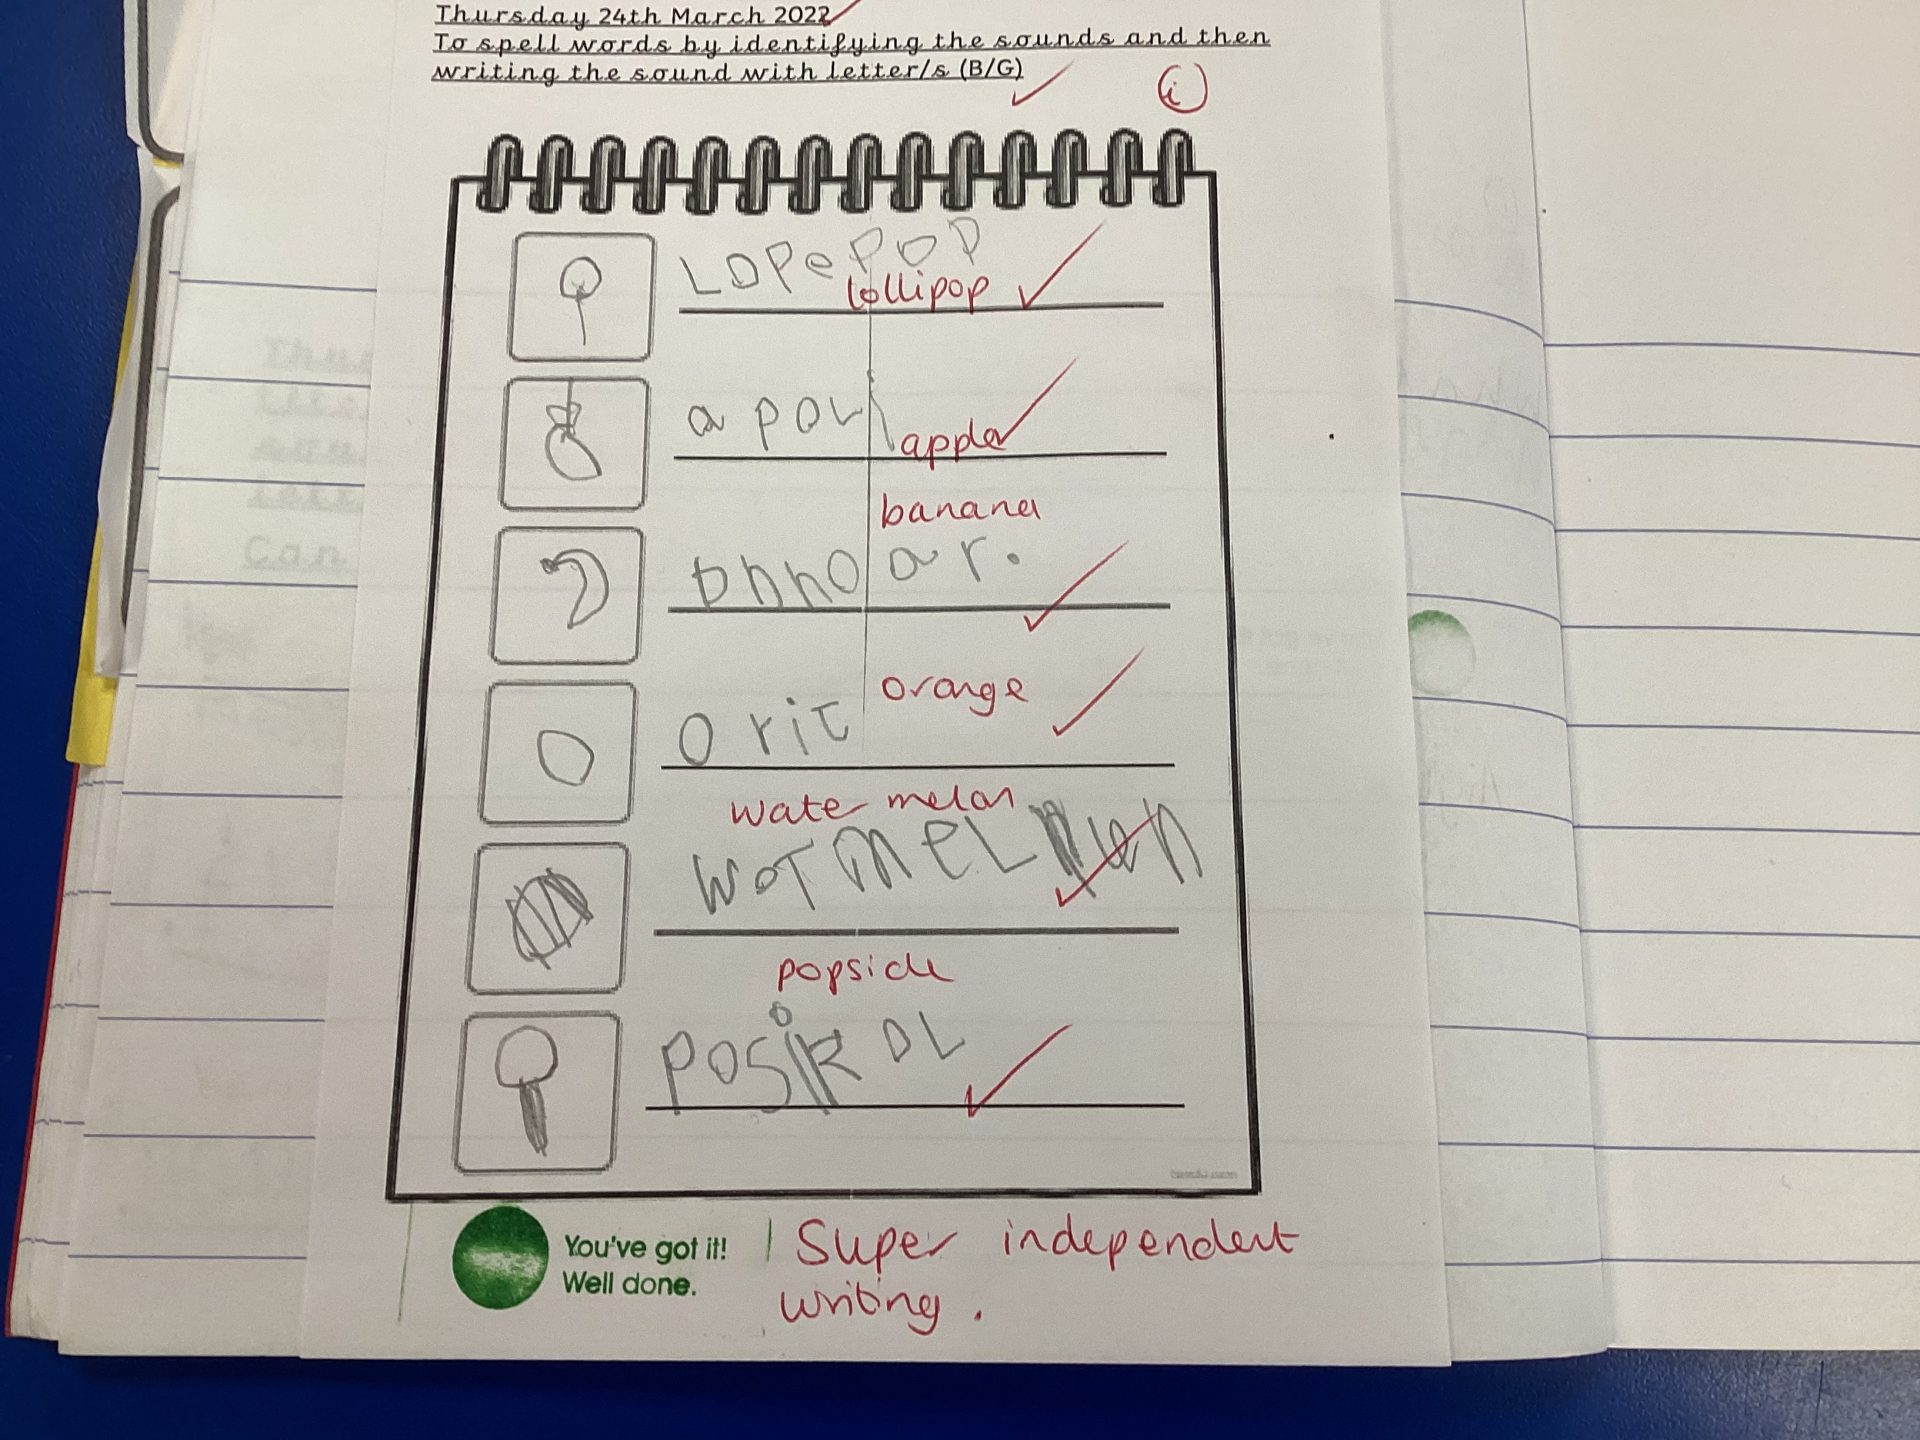 Thursday 24th March 2022
To spell words by identifying the sounds and then
writing the sound with letter/s (B/G)
i
LOPePOP
lollipop
a powl
apple
banana
bnnoar.
orange
orit
water melon
WOTmeLun
popsicle
POSiKOL
You've got it!
Well done.
Super independent
writing.
Can